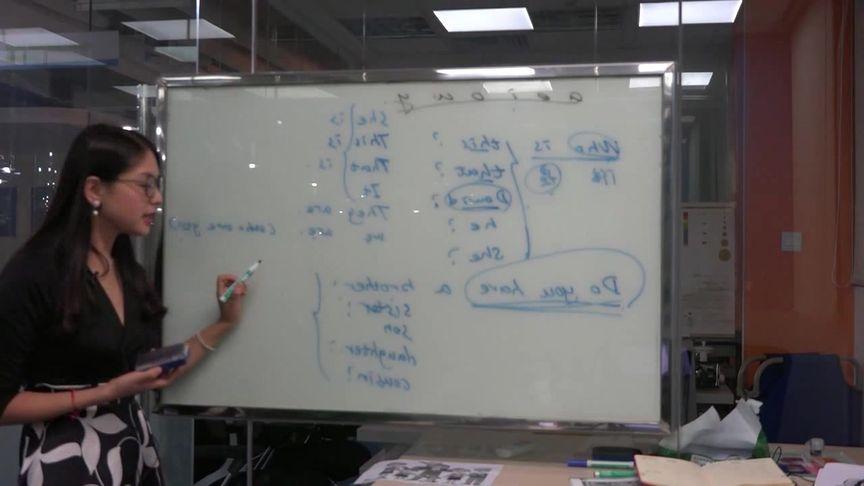 a e i o u y
Who is
this ?
that ?
David ?
he ?
She ?
She is
This is
That is
It
They are
we are (who are you)
Do you have a
brother ?
sister ?
son
daughter ?
cousin ?